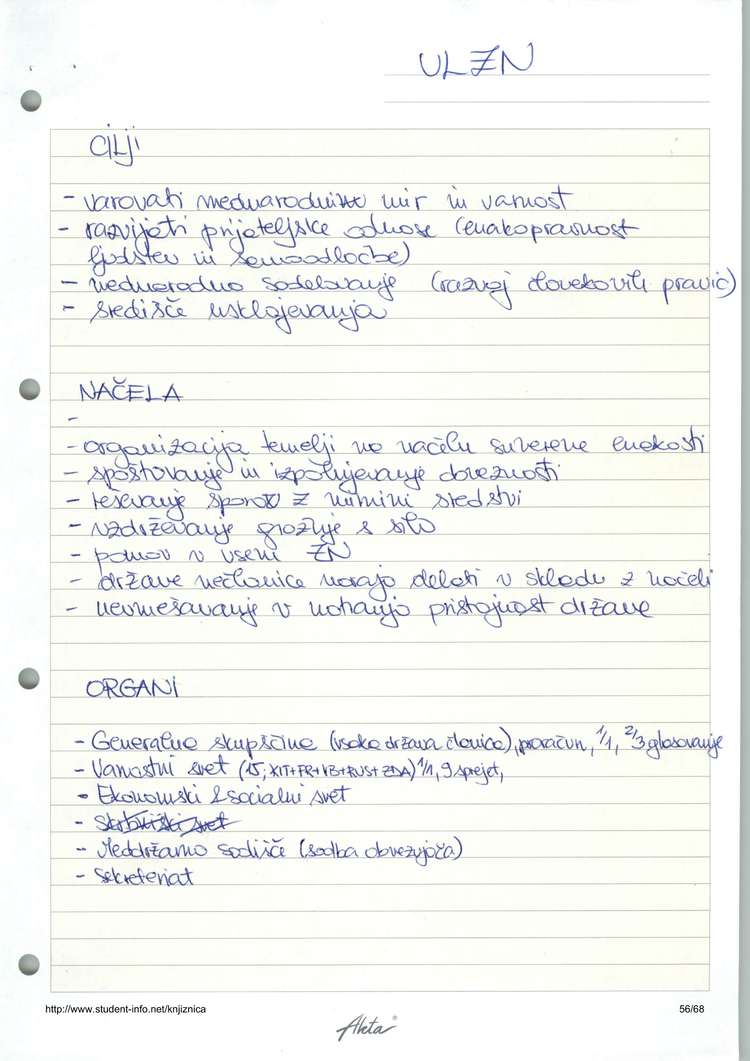 ULZN
CILJI
- varovati mednarodni mir in varnost
- razvijati prijateljske odnose (enakopravnost
ljudstev in samoodločbe)
- mednarodno sodelovanje (razvoj človekovih pravic)
- središče usklajevanja
NAČELA
-
- organizacija temelji na načelu suverene enakosti
- spoštovanje in izpolnjevanje obveznosti
- reševanje sporov z mirnimi sredstvi
- vzdrževanje grožnje s silo
- pomoč v vsem ZN
- države nečlanice morajo delati v skladu z načeli
- nevmešavanje v notranjo pristojnost države
ORGANI
- Generalna skupščina (vsaka država članica), proračun, 1/1, 2/3 glasovanje
- Varnostni svet (15; KIT+FR+VB+RUS+ZDA) 1/1, 9 sprejet,
- Ekonomski & socialni svet
- Skrbniški svet
- Meddržavno sodišče (sodba obvezujoča)
- Sekretariat
http://www.student-info.net/knjiznica
56/68
Aleta